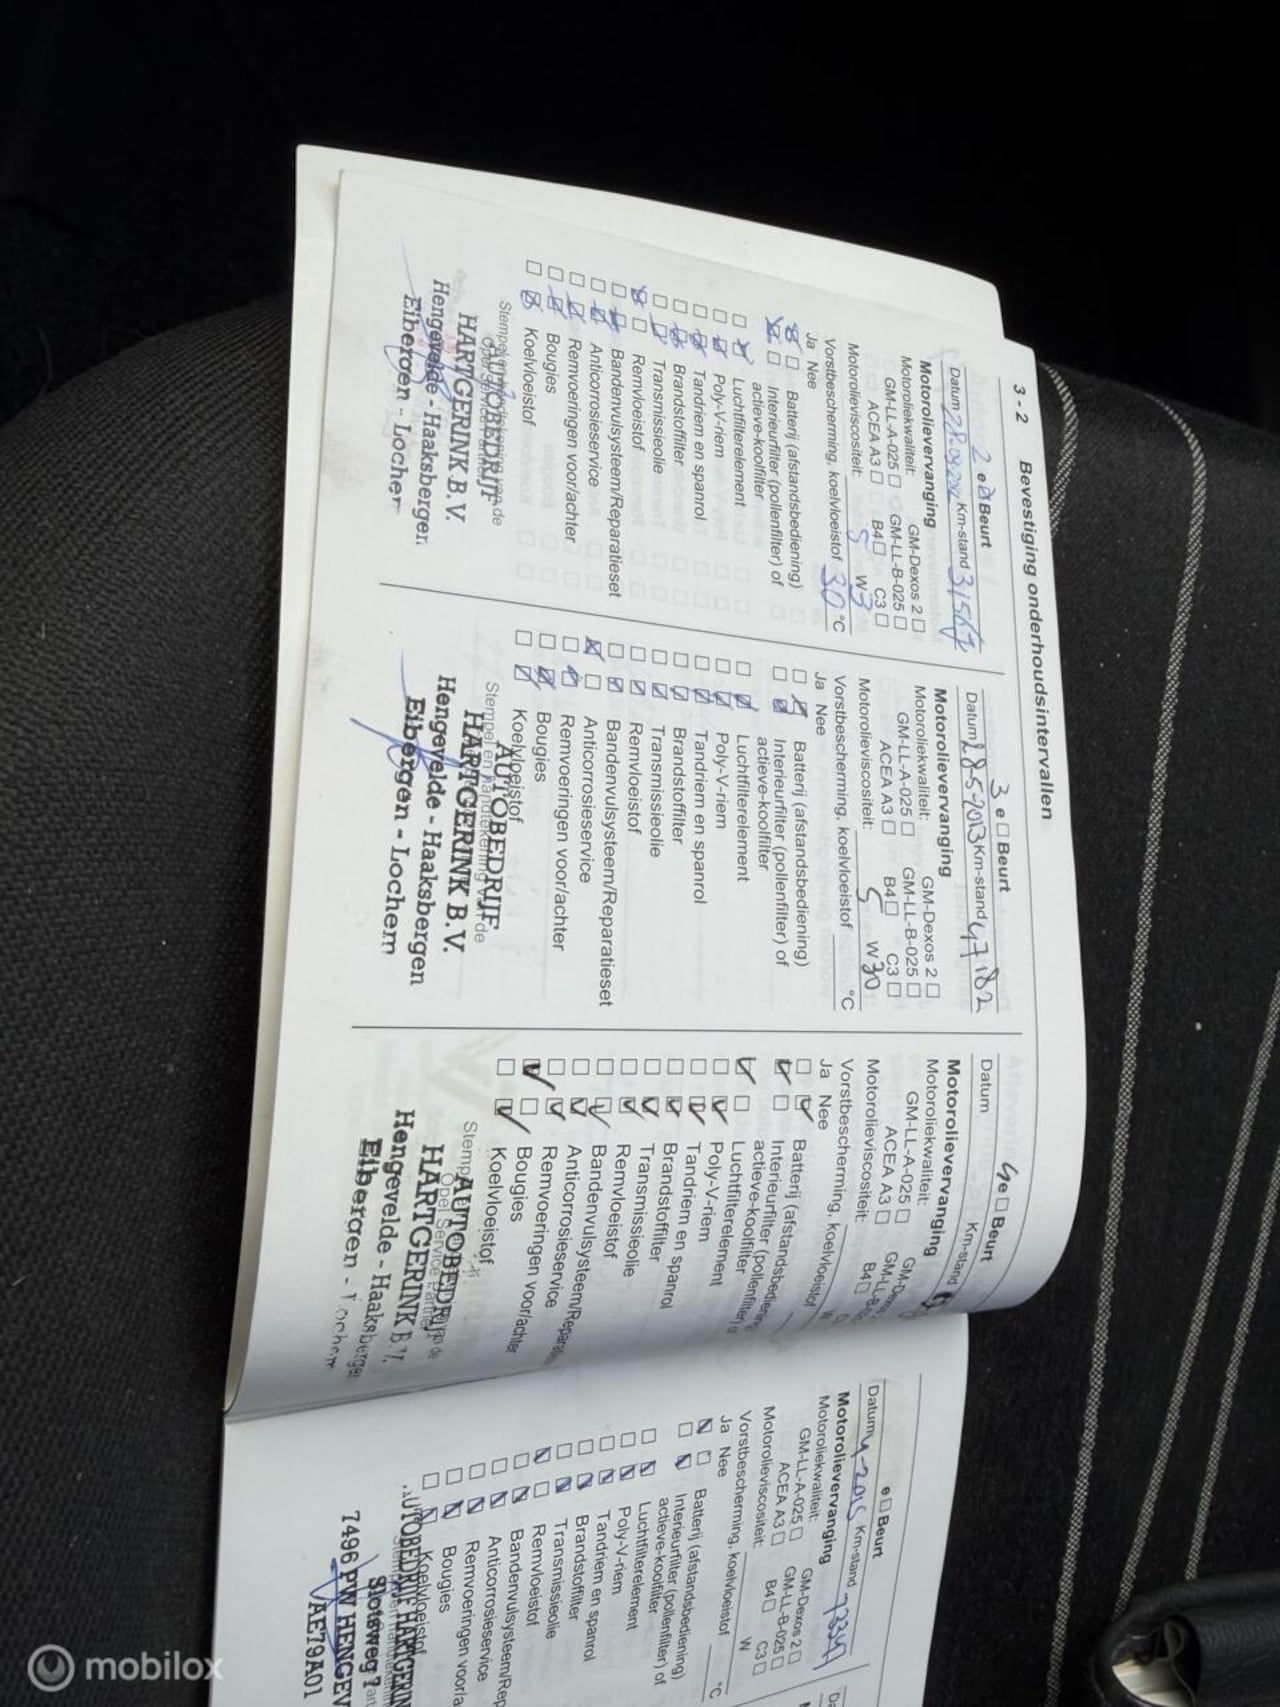 3 - 2 Bevestiging onderhoudsintervallen
2 e Beurt
Datum Km-stand
Motorolievervanging
Motoroliekwaliteit: GM-Dexos 2
GM-LL-A-025 GM-LL-B-025
ACEA A3 B4 C3
Motorolieviscositeit: 5 W3
Vorstbescherming, koelvloeistof 30 °C
Ja Nee
Batterij (afstandsbediening)
Interieurfilter (pollenfilter) of
actieve-koolfilter
Luchtfilterelement
Poly-V-riem
Tandriem en spanrol
Brandstoffilter
Transmissieolie
Remvloeistof
Bandenvulsysteem/Reparatieset
Anticorrosieservice
Remvoeringen voor/achter
Bougies
Koelvloeistof
AUTOBEDRIJF
HARTGERINK B.V.
Hengevelde - Haaksbergen
Eibergen - Lochem
3 e Beurt
Datum 28-5-2013 Km-stand 47182
Motorolievervanging
Motoroliekwaliteit: GM-Dexos 2
GM-LL-A-025 GM-LL-B-025
ACEA A3 B4 C3
Motorolieviscositeit: 5 W30
Vorstbescherming, koelvloeistof °C
Ja Nee
Batterij (afstandsbediening)
Interieurfilter (pollenfilter) of
actieve-koolfilter
Luchtfilterelement
Poly-V-riem
Tandriem en spanrol
Brandstoffilter
Transmissieolie
Remvloeistof
Bandenvulsysteem/Reparatieset
Anticorrosieservice
Remvoeringen voor/achter
Bougies
Koelvloeistof
Stempel en handtekening van de
AUTOBEDRIJF
HARTGERINK B.V.
Hengevelde - Haaksbergen
Eibergen - Lochem
4e Beurt
Datum Km-stand
Motorolievervanging
Motoroliekwaliteit:
GM-LL-A-025
ACEA A3 B4
Motorolieviscositeit: W
Vorstbescherming, koelvloeistof
Ja Nee
Batterij (afstandsbediening
Interieurfilter (pollenfilter) o
actieve-koolfilter
Luchtfilterelement
Poly-V-riem
Tandriem en spanrol
Brandstoffilter
Transmissieolie
Remvloeistof
Bandenvulsysteem/Repara
Anticorrosieservice
Remvoeringen voor/achter
Bougies
Koelvloeistof
AUTOBEDRIJF
HARTGERINK B.V.
Hengevelde - Haaksberge
Eibergen - Lochem
e Beurt
Datum 4-2015 Km-stand
Motorolievervanging
Motoroliekwaliteit: GM-Dexos 2
GM-LL-A-025 GM-LL-B-025
ACEA A3 B4 C3
Motorolieviscositeit: W
Vorstbescherming, koelvloeistof °C
Ja Nee
Batterij (afstandsbediening)
Interieurfilter (pollenfilter) of
actieve-koolfilter
Luchtfilterelement
Poly-V-riem
Tandriem en spanrol
Brandstoffilter
Transmissieolie
Remvloeistof
Bandenvulsysteem/Rep
Anticorrosieservice
Remvoeringen voor/a
Bougies
Koelvloeistof
AUTOBEDRIJF HARTGERIN
Slotsweg 7
7496 PW HENGEV
AE79A01
mobilox